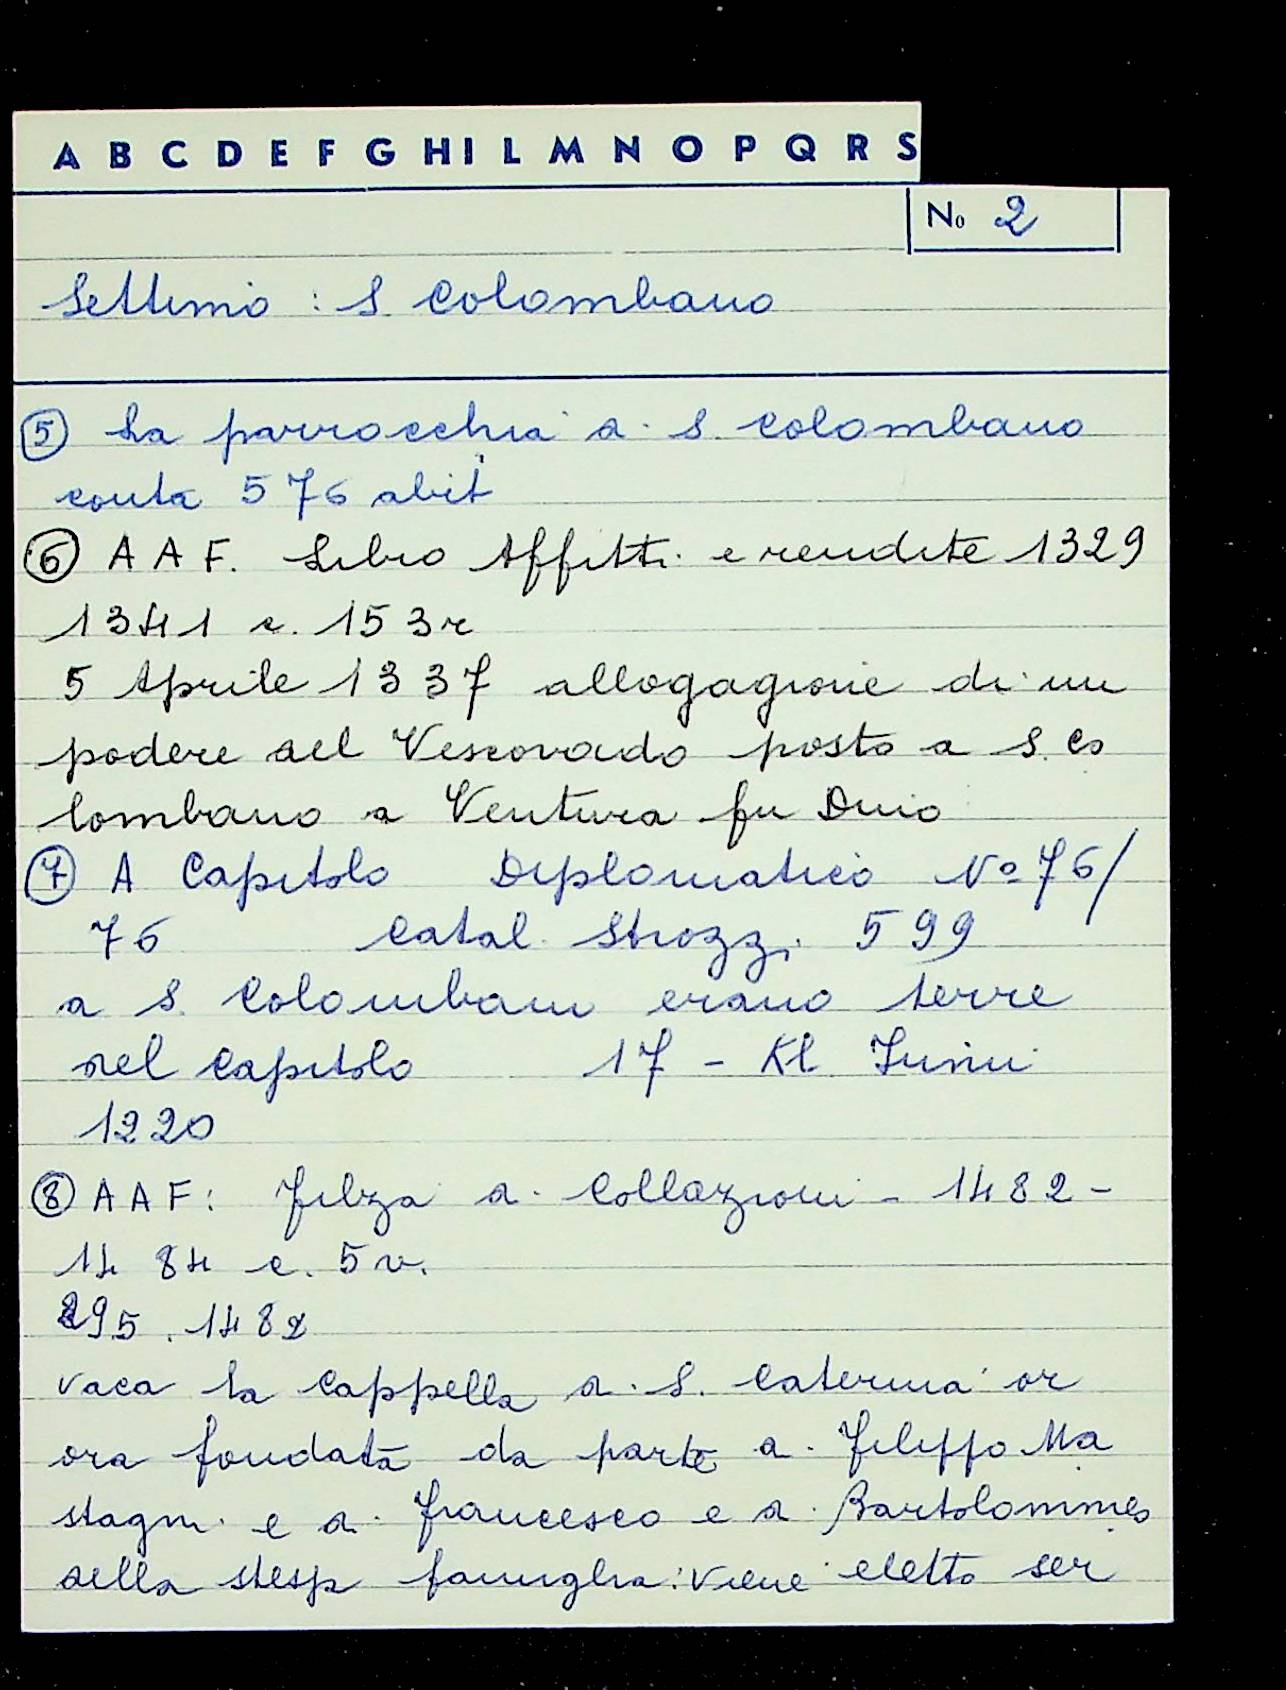 A B C D E F G H I L M N O P Q R S
No 2
Settimo : S. Colombano
5 La parrocchia di S. Colombano
conta 576 abit
6 A A F. Libro Affitti e rendite 1329
1341 c. 153r
5 Aprile 1337 allogagione di un
podere del Vescovado posto a S. Co
lombano a Ventura fu Duio
7 A Capitolo Diplomatico No 76/
76 Catal. Strozzi 599
a S. Colombano erano terre
del Capitolo 17 - Kl Junii
1220
8 A A F: Filza di Collazioni - 1482 -
1484 c. 5v.
295. 1482
vaca la cappella di S. Caterina or
ora fondata da parte di Filippo Ma
stagni e di Francesco e di Bartolommeo
della stessa famiglia: viene eletto ser